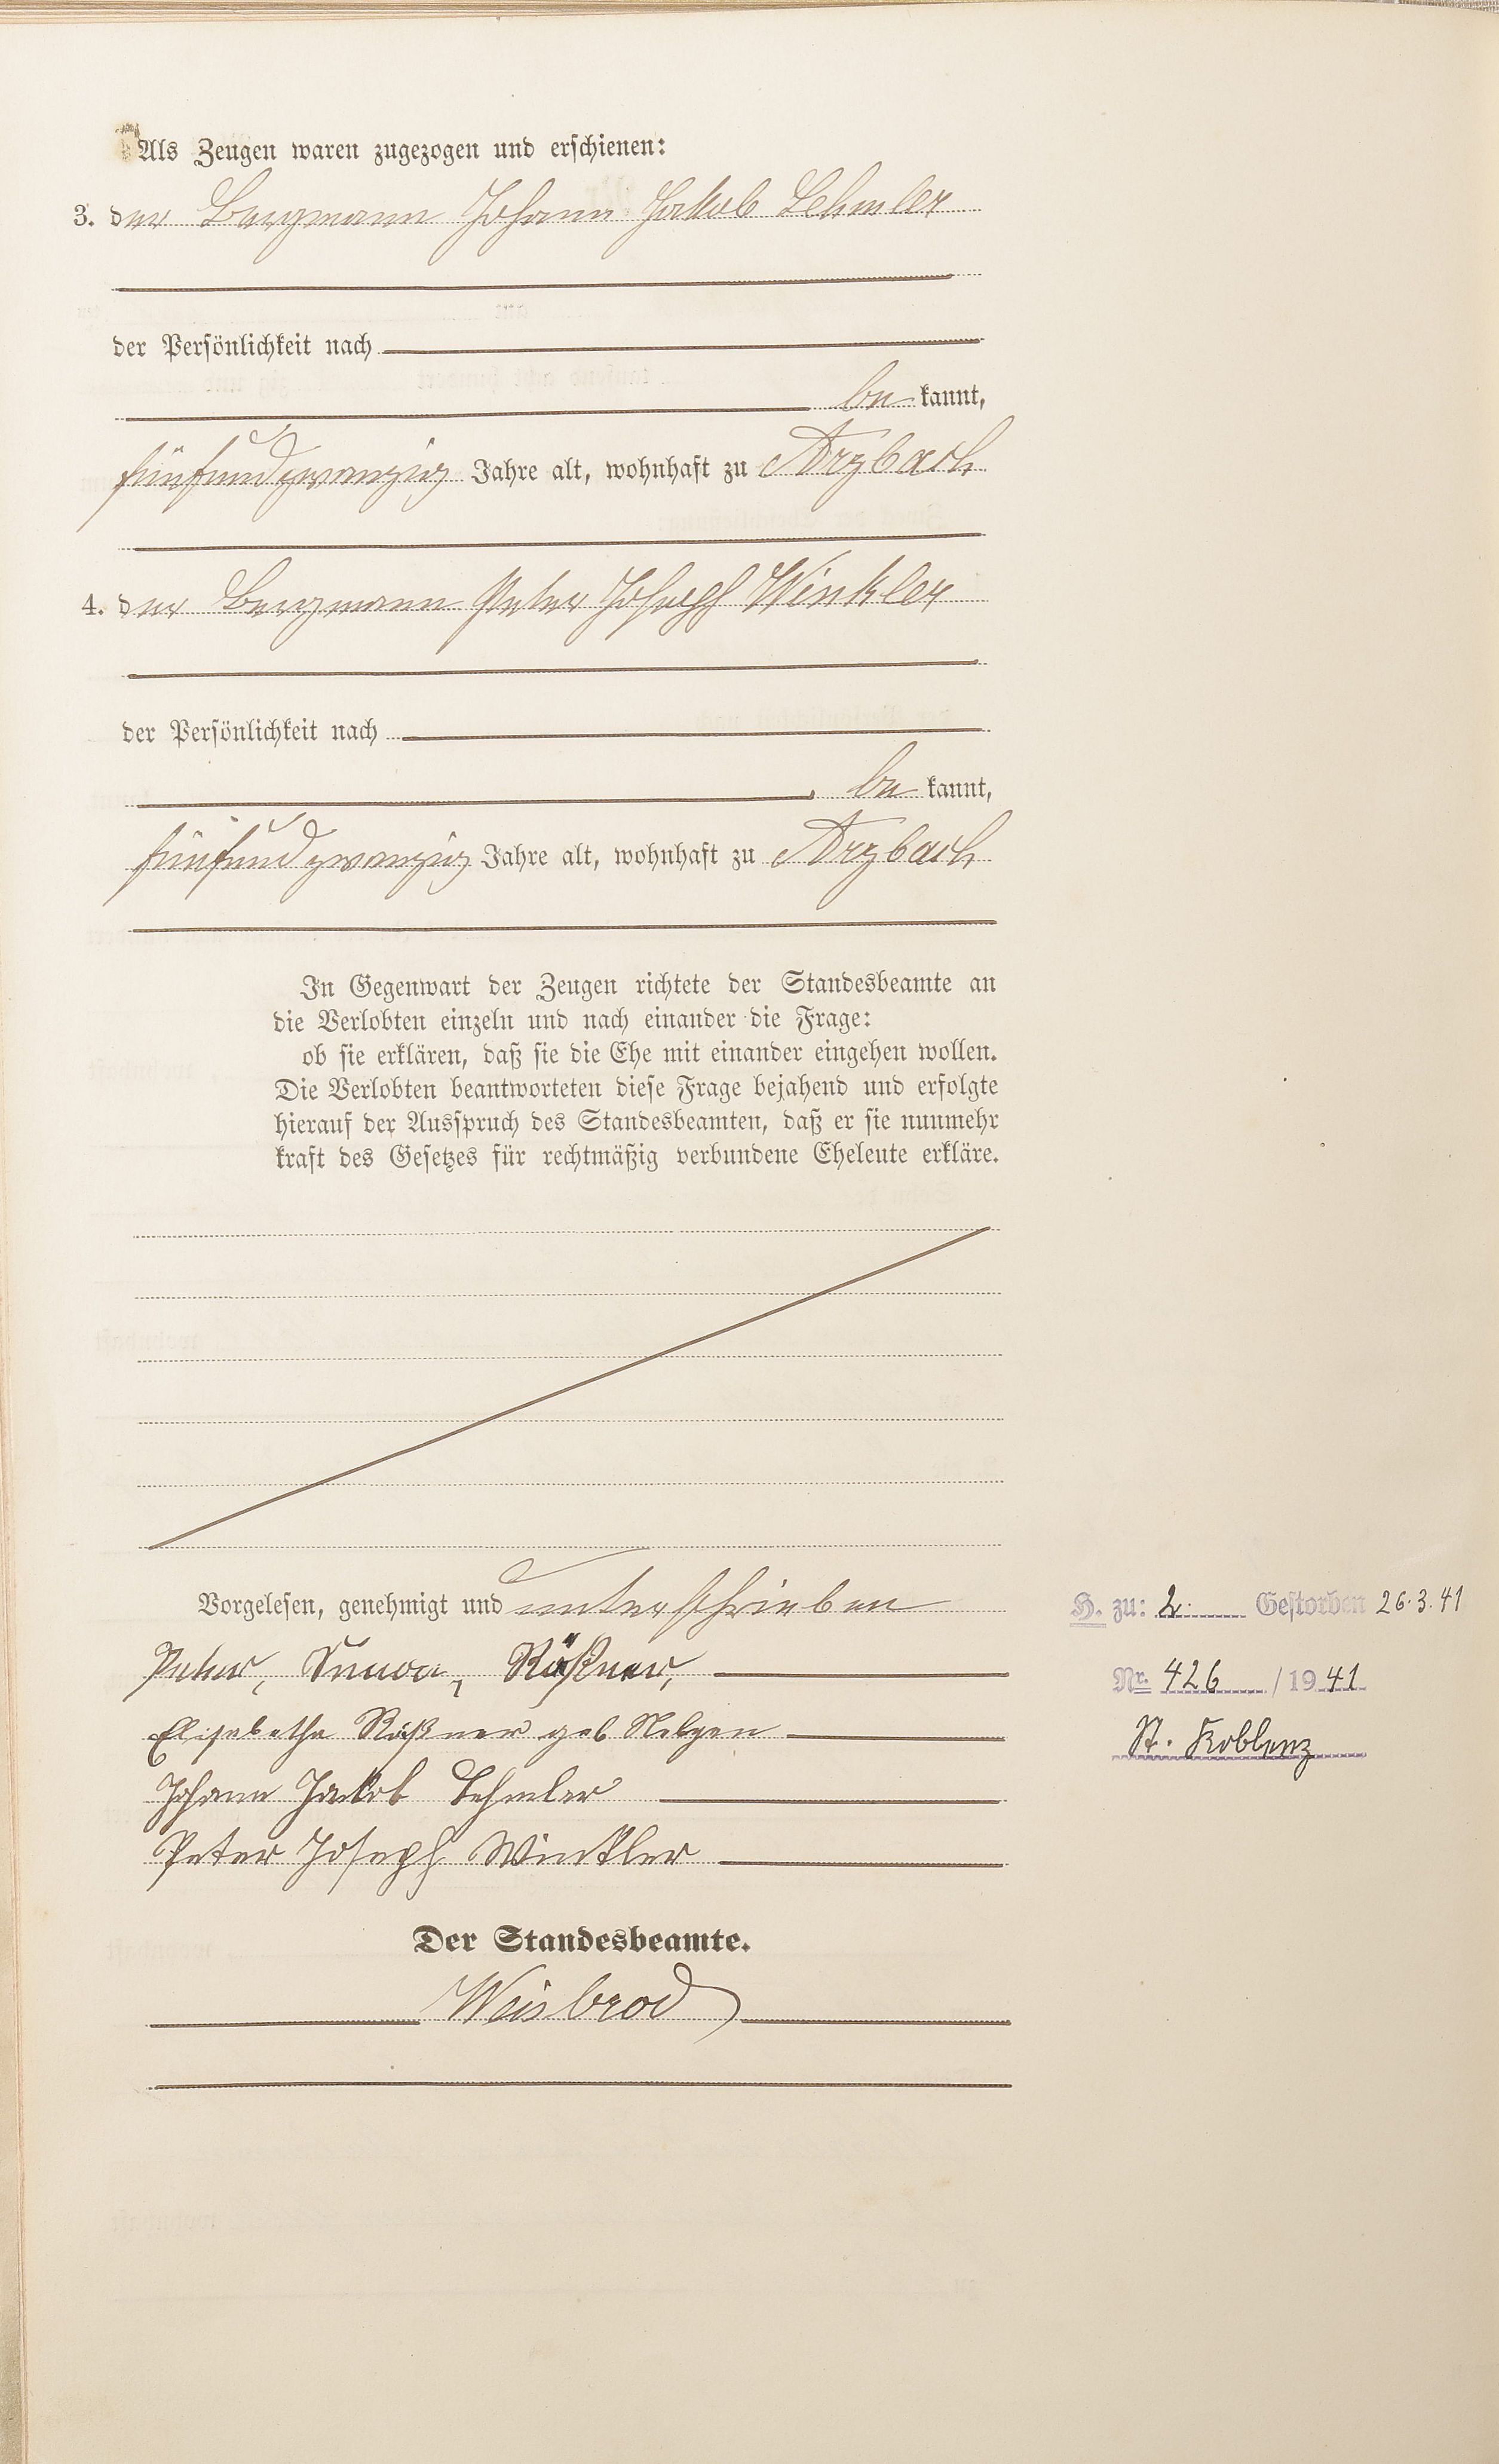 Als Zeugen waren zugezogen und erschienen:
3. der Bergmann Johann Jakob Lehmler
der Persönlichkeit nach
be kannt,
fünfundzwanzig Jahre alt, wohnhaft zu Arzbach
4. der Bergmann Peter Joseph Winkler
der Persönlichkeit nach
be kannt,
fünfundzwanzig Jahre alt, wohnhaft zu Arzbach
In Gegenwart der Zeugen richtete der Standesbeamte an
die Verlobten einzeln und nach einander die Frage:
ob sie erklären, daß sie die Ehe mit einander eingehen wollen.
Die Verlobten beantworteten diese Frage bejahend und erfolgte
hierauf der Ausspruch des Standesbeamten, daß er sie nunmehr
kraft des Gesetzes für rechtmäßig verbundene Eheleute erkläre.
Vorgelesen, genehmigt und unterschrieben
Peter, Simon, Rößner,
Elisabetha Rößner geb Nelgen
Johann Jakob Lehmler
Peter Joseph Winkler
Der Standesbeamte.
Weisbrod
H. zu: 2. Gestorben 26.3.41
Nr. 426 / 1941
St. Koblenz